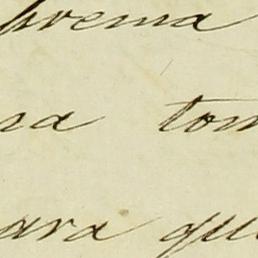 prema
na tom
para que